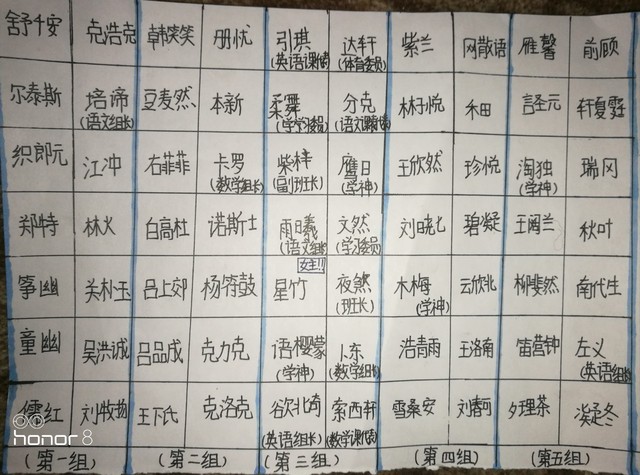 舒千安 克浩克 韩笑笑 册忧 引琪 达轩 紫兰 网散语 雁馨 前顾
(英语课代表) (体育委员)
尔泰斯 培谛 豆麦然 本新 柔舞 分克 林子悦 禾田 言圣元 轩夏霆
(语文组长) (学习委员) (语文课代表)
织郎元 江冲 右菲菲 卡罗 柴梓 鹰日 王欣然 珍悦 淘独 瑞冈
(数学组长) (副班长) (学神) (学神)
郑特 林火 白高杜 诺斯士 雨曦 文然 刘晓七 碧凝 王阔兰 秋叶
(语文组长) (学习委员)
女主!!
筝幽 关朴玉 吕上郊 杨符鼓 星竹 夜煞 木梅 云欣北 柳斐然 南代生
(班长) (学神)
童幽 吴洪诚 吕品成 克力克 语樱蒙 卜东 浩青雨 王洛南 笛营钟 左义
(学神) (数学组长) (英语组长)
儒红 刘牧物 王下氏 克洛克 欲北奇 索西轩 雪桑安 刘春河 夕理茶 凌是冬
(英语组长) (数学课代表)
(第一组) (第二组) (第三组) (第四组) (第五组)
honor 8